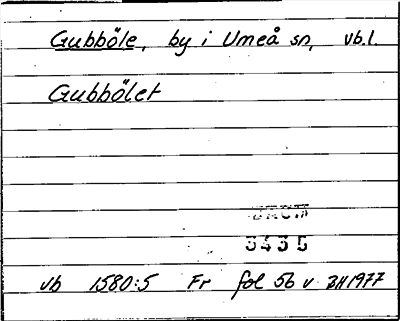 Gubböle, by i Umeå sn, vb.l.
Gubbölet
3435
vb 1580:5 Fr fol 56 v BH 1977